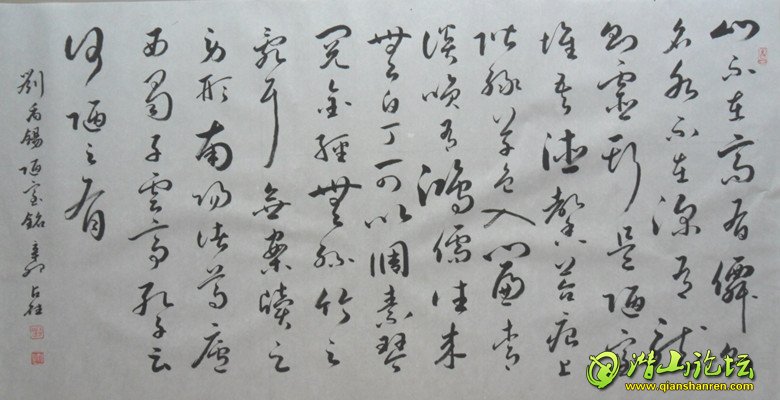 山不在高有僊則
名水不在深有龍
則靈斯是陋室
惟吾德馨苔痕上
階綠草色入簾青
談咲有鴻儒往来
無白丁可以調素琴
閱金經無絲竹之
亂耳無案牘之
勞形南陽諸葛廬
西蜀子雲亭孔子云
何陋之有
劉禹錫陋室銘辛卯
潜山论坛
www.qianshanren.com